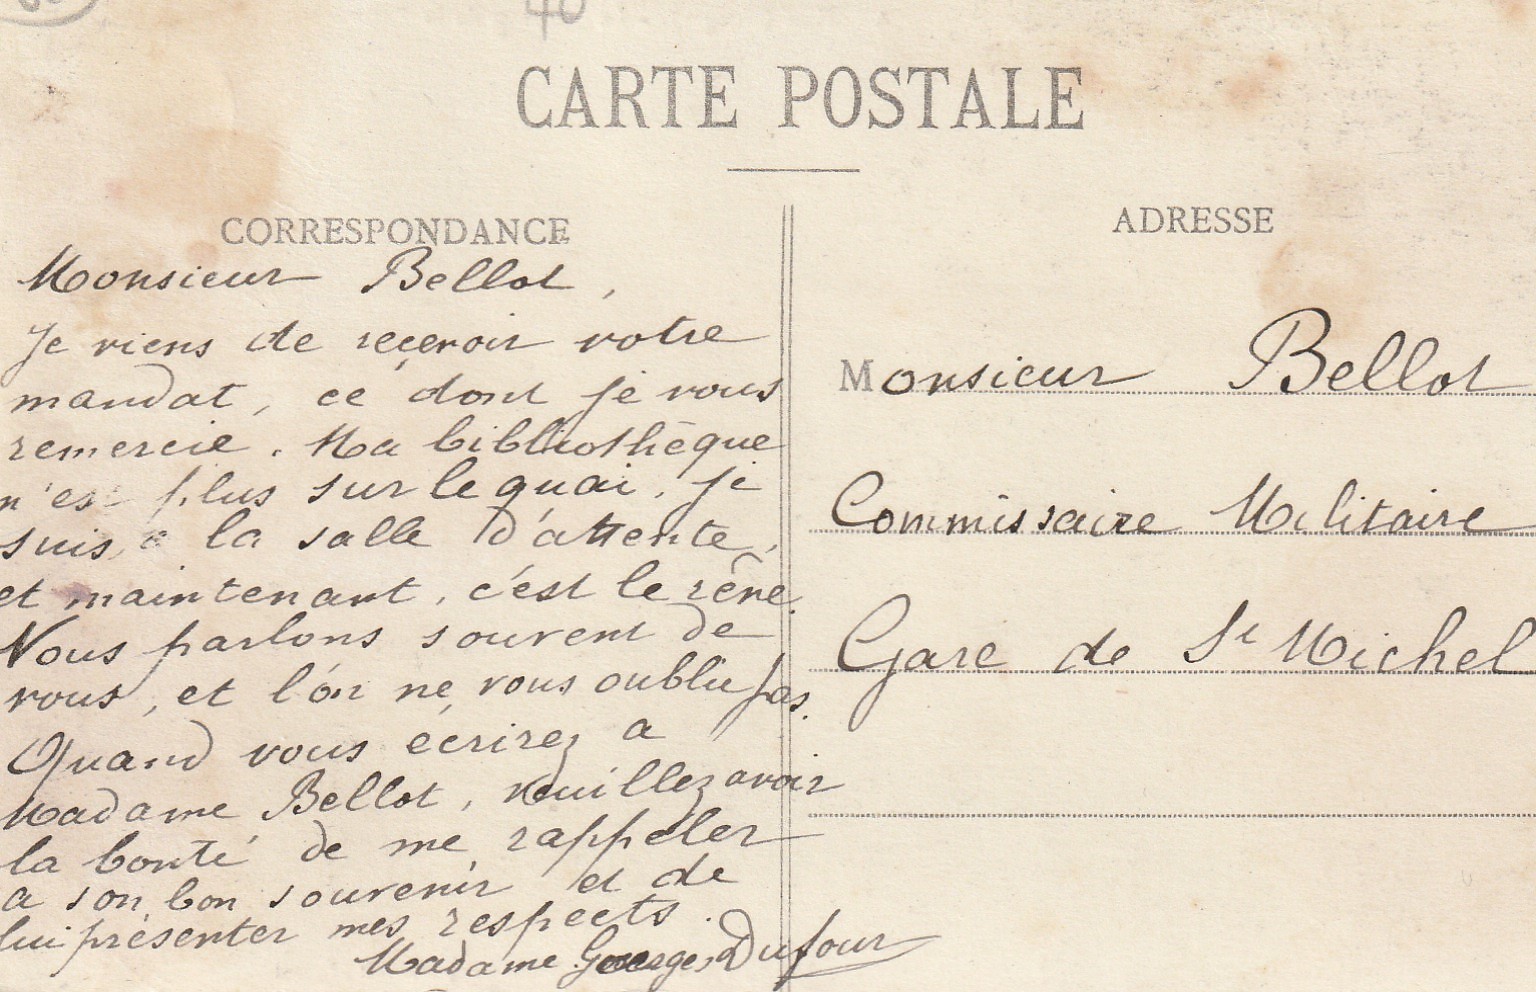 40
CARTE POSTALE
CORRESPONDANCE
Monsieur Bellot,
Je viens de recevoir votre
mandat, ce dont je vous
remercie. Ma bibliothèque
n'est plus sur le quai, je
suis à la salle d'attente,
et maintenant, c'est le rêve.
Nous parlons souvent de
vous, et l'on ne vous oublie pas.
Quand vous écrirez a
Madame Bellot, veuillez avoir
la bonté de me rappeler
a son bon souvenir et de
lui présenter mes respects.
Madame Georges Dufour
ADRESSE
Monsieur Bellot
Commissaire Militaire
Gare de St Michel